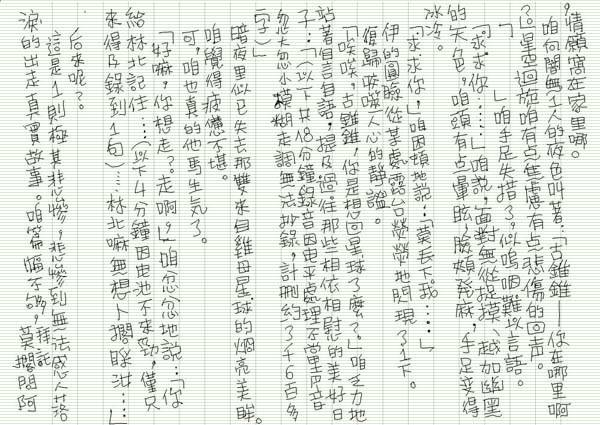 ，情願窩在家里哪。
咱向闇無1人的夜色叫著：「古錐錐——你在哪里啊
？」星空迴旋咱有点焦慮有点悲傷的回声。
「　　」咱手足失措了，似嗚咽難以言語。
「求求你……」咱說，面對無從捉摸、越加幽黑
的天色，咱頭有点暈眩，臉頰発麻，手足変得
冰冷。
「求求你，」咱因頓地説：「莫丟下我……」
伊的圓臉從某處露台熒熒地閃現了1下。
復歸啖啖人心的靜謐。
「唉唉，古錐錐，你是想回星球了麼？」咱乏力地
站著自言自語，提及過往那些相依相慰的美好日
子：「（以下共18分鐘錄音因電平處理不當声音
忽大忽小模糊走調無法抄錄，計刪約3千6百多
字）
暗夜里似已失去那雙來自雞母星球的燜亮美眸。
咱覺得疲憊不堪。
可，咱也真的他馬生気了。
「好嘛，你想走？走啊，」咱忿忿地説：「你
給林北記住……（以下4分鐘因电池不來勁，僅只
來得及錄到1句）……林北嘛無想卜擱睬汝……」
后來呢？
這是1則極其悲慘，悲慘到無法感人落
淚的出走真實故事。咱篇幅不夠，拜託
莫擱問阿